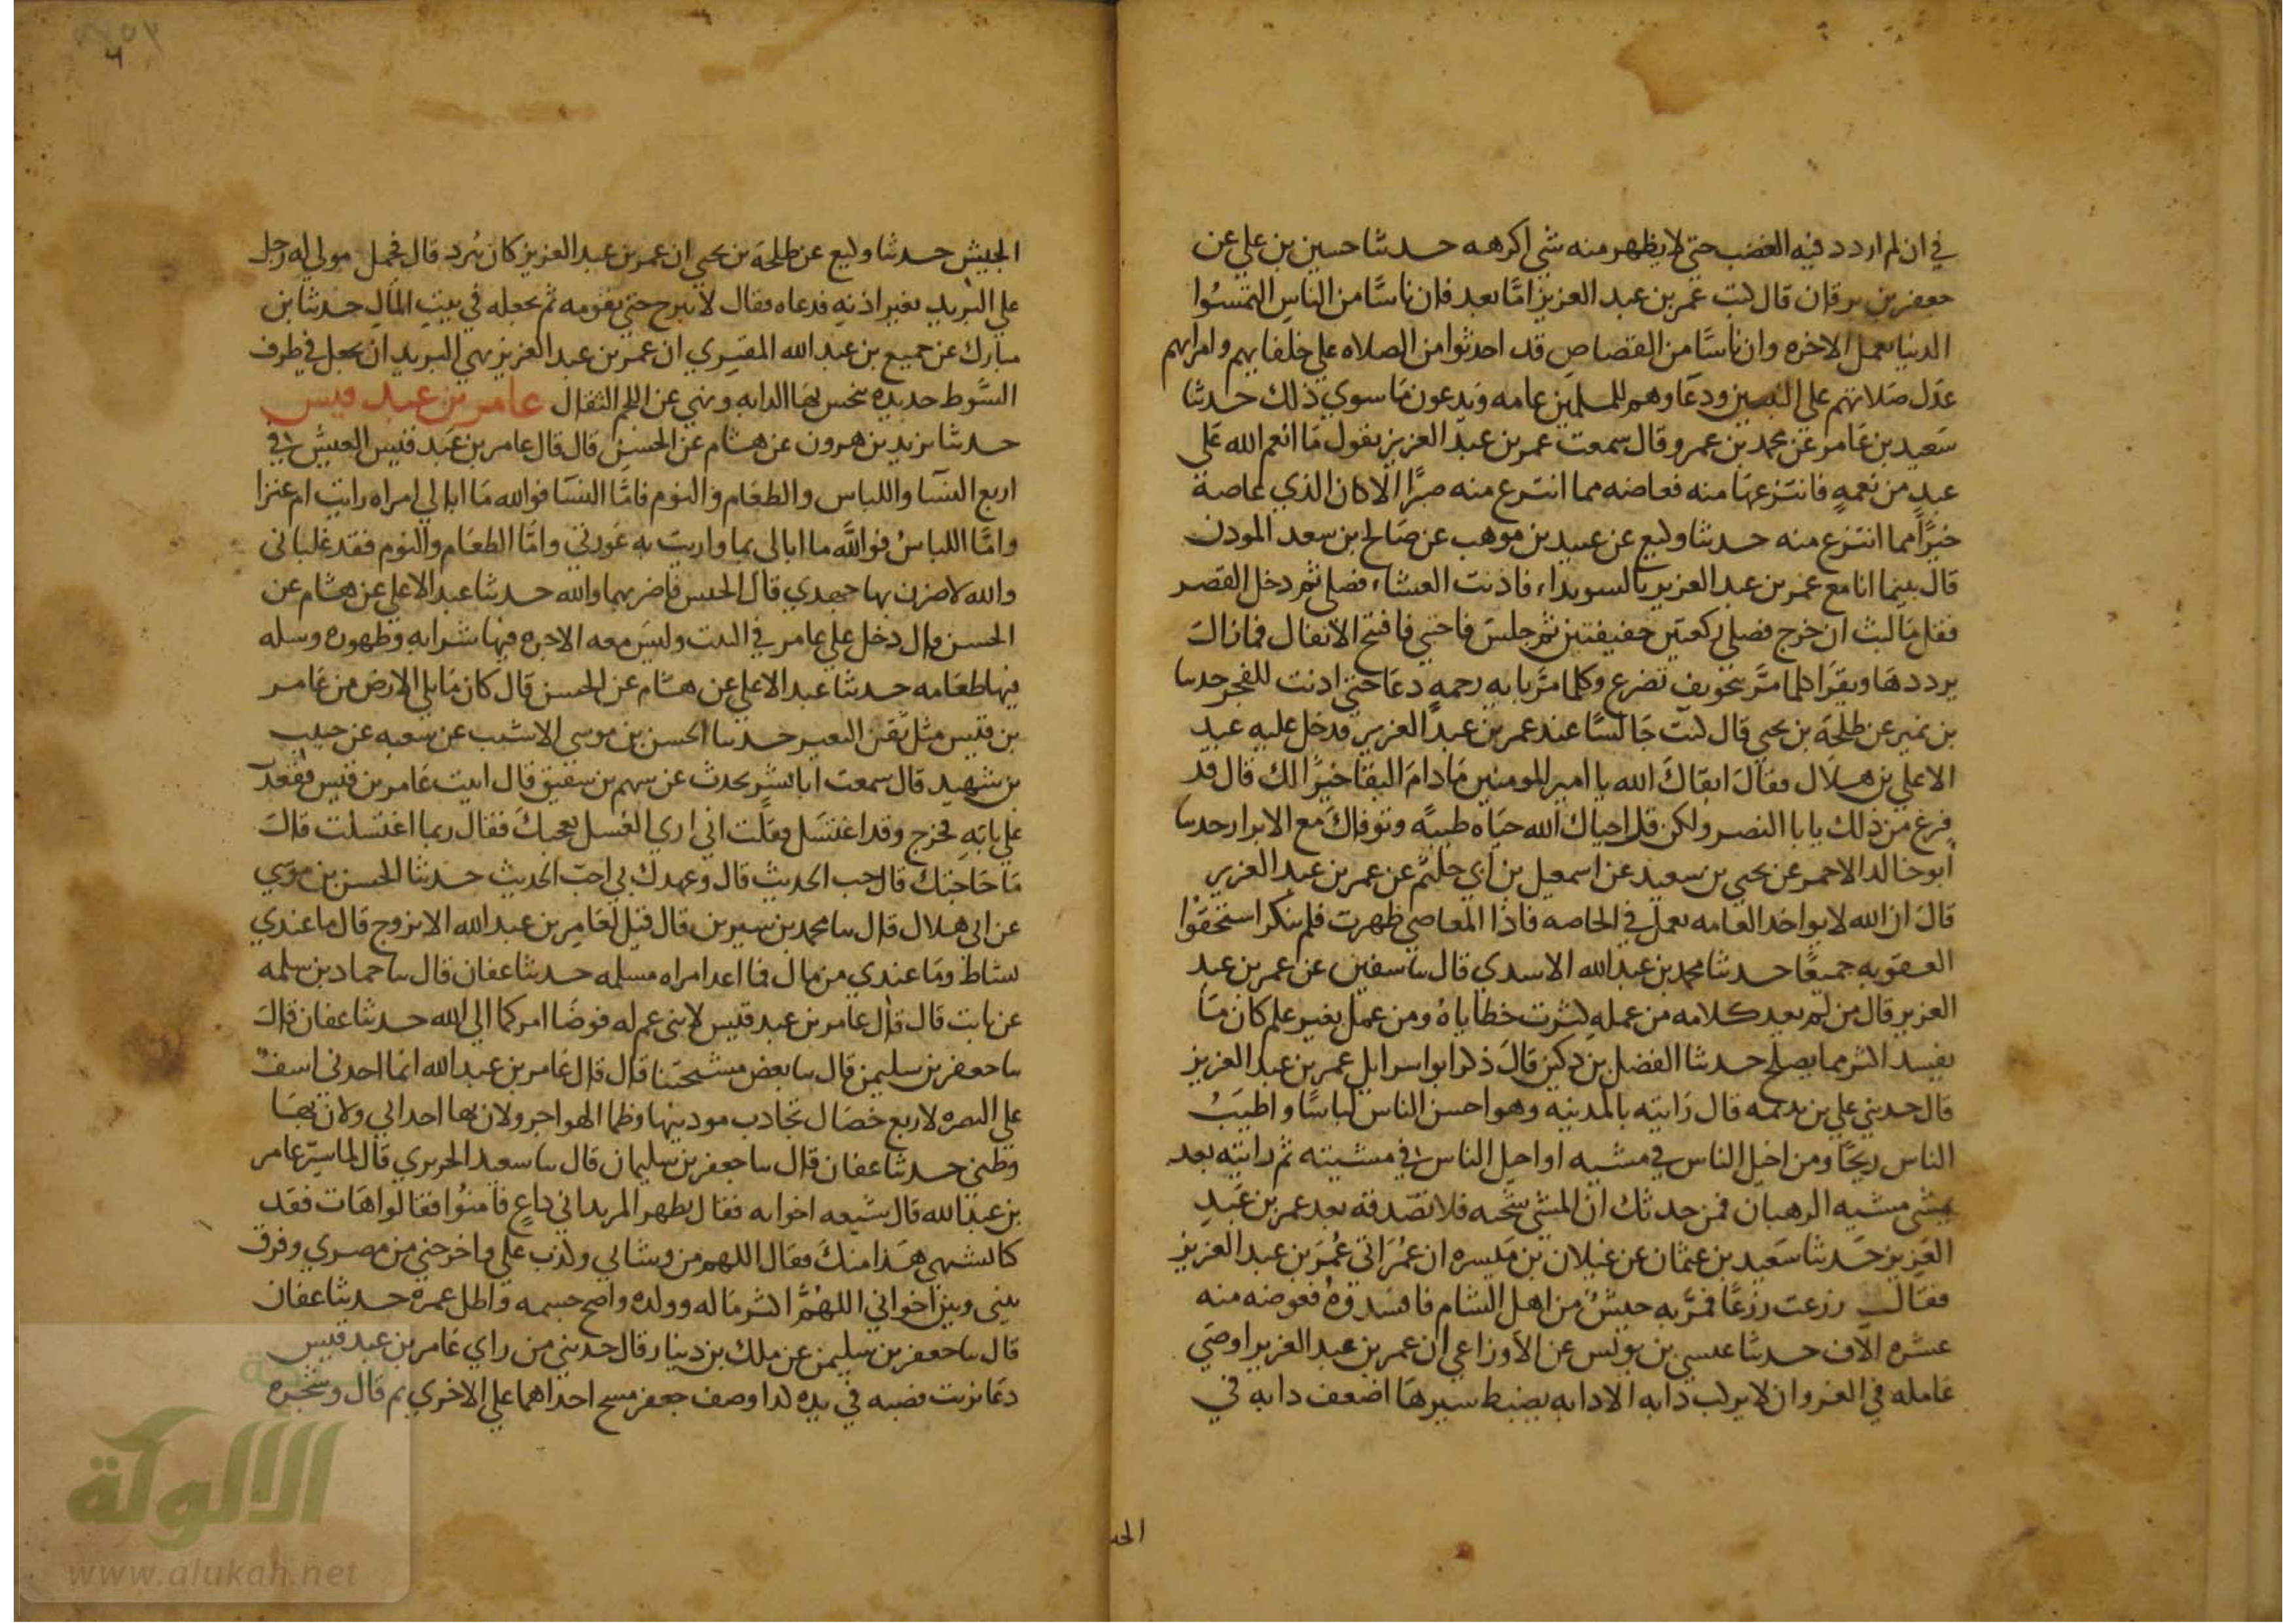 في ان لم اردد فيه الغضب حتى لا يظهر منه شي اكرهه حدثنا حسين بن علي عن
جعفر بن برقان قال كتب عمر بن عبد العزيز امّا بعد فان ناسًا من الناس التمسُوا
الدنيا بعمل الاخره وان ناسًا من القصاص قد احدثوا من الصلاه علي خلفايهم وامرايهم
عدل صلاتهم علي النبيين ودعاوهم للمسلمين عامه ويدعون ما سوي ذلك حدثنا
سعيد بن عامر عن محمد بن عمرو قال سمعت عمر بن عبد العزيز يقول ما انعم الله علي
عبدٍ من نعمهٍ فانتزعها منه فعاضه مما انتزع منه صبرًا الا كان الذي عاضه
خيرًا مما انتزع منه حدثنا وكيع عن عبيد بن موهب عن صالح بن سعد المودن
قال بينما انا مع عمر بن عبد العزيز بالسويداء فاذنت العشاء فصلي ثم دخل القصر
فقل ما لبث ان خرج فصلي ركعتين خفيفتين ثم جلس فاحتبي فافتتح الانفال فما زال
يرددها ويقرا كلما مرّ بتخويف تضرع وكلما مرّ بايه رحمهٍ دعا حتى اذنت للفجر حدثنا
بن نمير عن طلحه بن يحيي قال كنت جالسًا عند عمر بن عبد العزيز فدخل عليه عبد
الاعلي بن هلال فقال ابقاك الله يا امير المومنين ما دام البقا خيرًا لك قال قد
فرغ من ذلك يابا النضر ولكن قل احياك الله حياه طيبهً وتوفاك مع الابرار حدثنا
ابو خالد الاحمر عن يحيي بن سعيد عن اسمعيل بن ابي حكيم عن عمر بن عبد العزيز
قال ان الله لا يواخذ العامه بعمل في الخاصه فاذا المعاصي ظهرت فلم ينكر استحقوا
العقوبه جميعًا حدثنا محمد بن عبد الله الاسدي قال سا سفين عن عمر بن عبد
العزيز قال من لم يعد كلامه من عمله كثرت خطاياهُ ومن عمل بغير علم كان ما
يفسد اكثر مما يصلح حدثنا الفضل بن دكين قال ذكر ابو اسرايل عمر بن عبد العزيز
قال حدثني علي بن بذيمه قال رايته بالمدينه وهو احسن الناس لباسًا واطيبُ
الناس ريحًا ومن اخيل الناس في مشيه او اخيل الناس في مشيته ثم رايته بعد
يمشي مشيه الرهبان فمن حدثك ان المشي سجيه فلا تصدقه بعد عمر بن عبد
العزيز حدثنا سعيد بن عثمان عن غيلان بن ميسره ان عُمَرَ اتى عُمَرَ بن عبد العزيز
فقال زرعت زرعًا فمرّ به جيشٌ من اهل الشام فافسدوهُ فعوضه منه
عشره الاف حدثنا عيسي بن يونس عن الاوزاعي ان عمر بن عبد العزيز اوصي
عامله في الغزو ان لا يركب دابه الا دابه يضبط سيرها اضعف دابه في
الجيش حدثنا وكيع عن طلحه بن يحيي ان عمر بن عبد العزيز كان يُبرد قال فحمل مولي له رجل
علي البريد بغير اذنهِ فدعاه فقال لا تبرح حتى نقومه ثم نجعله في بيت المال حدثنا بن
مبارك عن جميع بن عبد الله المقري ان عمر بن عبد العزيز نهي البريد ان يجعل في طرف
السوط حديده ينخس بها الدابه ونهي عن اللجم الثقال عامر بن عبد قيس
حدثنا يزيد بن هرون عن هشام عن الحسن قال قال عامر بن عبد قيس العيش في
اربع النسا واللباس والطعام والنوم فامّا النسا فوالله ما ابالي امراه رايت ام عنزا
وامّا اللباسُ فواللّه ما ابالي بما واريت به عورتي وامّا الطعام والنوم فقد غلباني
والله لاضرن بهما جهدي قال الحسن فاضر بهما والله حدثنا عبد الاعلي عن هشام عن
الحسن قال دخل علي عامر في البيت وليس معه الا جره فيها شرابه وطهوره وسله
فيها طعامه حدثنا عبد الاعلي عن هشام عن الحسن قال كان ما يلي الارض من عامر
بن قيس مثل ثفن البعير حدثنا الحسن بن موسي الاشيب عن شعبه عن حبيب
بن شهيد قال سمعت ابا بشر يحدث عن سهم بن شقيق قال اتيت عامر بن قيس فقعدت
علي بابهِ فخرج وقد اغتسل فقلت اني اري الغسل يعجبك فقال ربما اغتسلت قال
ما حاجتك قال احب الحديث قال وعهدك بي احبّ الحديث حدثنا الحسن بن موسي
عن ابي هلال قال سا محمد بن سيرين قال قيل لعامر بن عبد الله الا تزوج قال ما عندي
نشاط وما عندي من مال فما اغر امراه مسلمه حدثنا عفان قال سا حماد بن سلمه
عن ثابت قال قال عامر بن عبد قيس لابني عم له فوضا امركما الي الله حدثنا عفان قال
سا جعفر بن سليمن قال سا بعض مشيختنا قال قال عامر بن عبد الله انما اجدني اسف
علي البصره لاربع خصال تجاوب موذنيها وظما الهواجر ولان بها اخداني ولان بها
وطني حدثنا عفان قال سا جعفر بن سليمان قال سا سعيد الجريري قال لما سيّر عامر
بن عبد الله قال شيعه اخوانه فقال بظهر المربد اني داعٍ فامنُوا فقالوا هات فقد
كنا نشتهي هذا منك فقال اللهم من وشا بي وكذب علي واخرجني من مصري وفرق
بيني وبين اخواني اللهُمَّ اكثر ماله وولده واصح جسمه واطل عمره حدثنا عفان
قال سا جعفر بن سليمن عن ملك بن دينار قال حدثني من راي عامر بن عبد قيس
دعا بزيت فصبه في يده كذا وصف جعفر مسح احداهما علي الاخري ثم قال وشجره
الالوكة
www.alukah.net